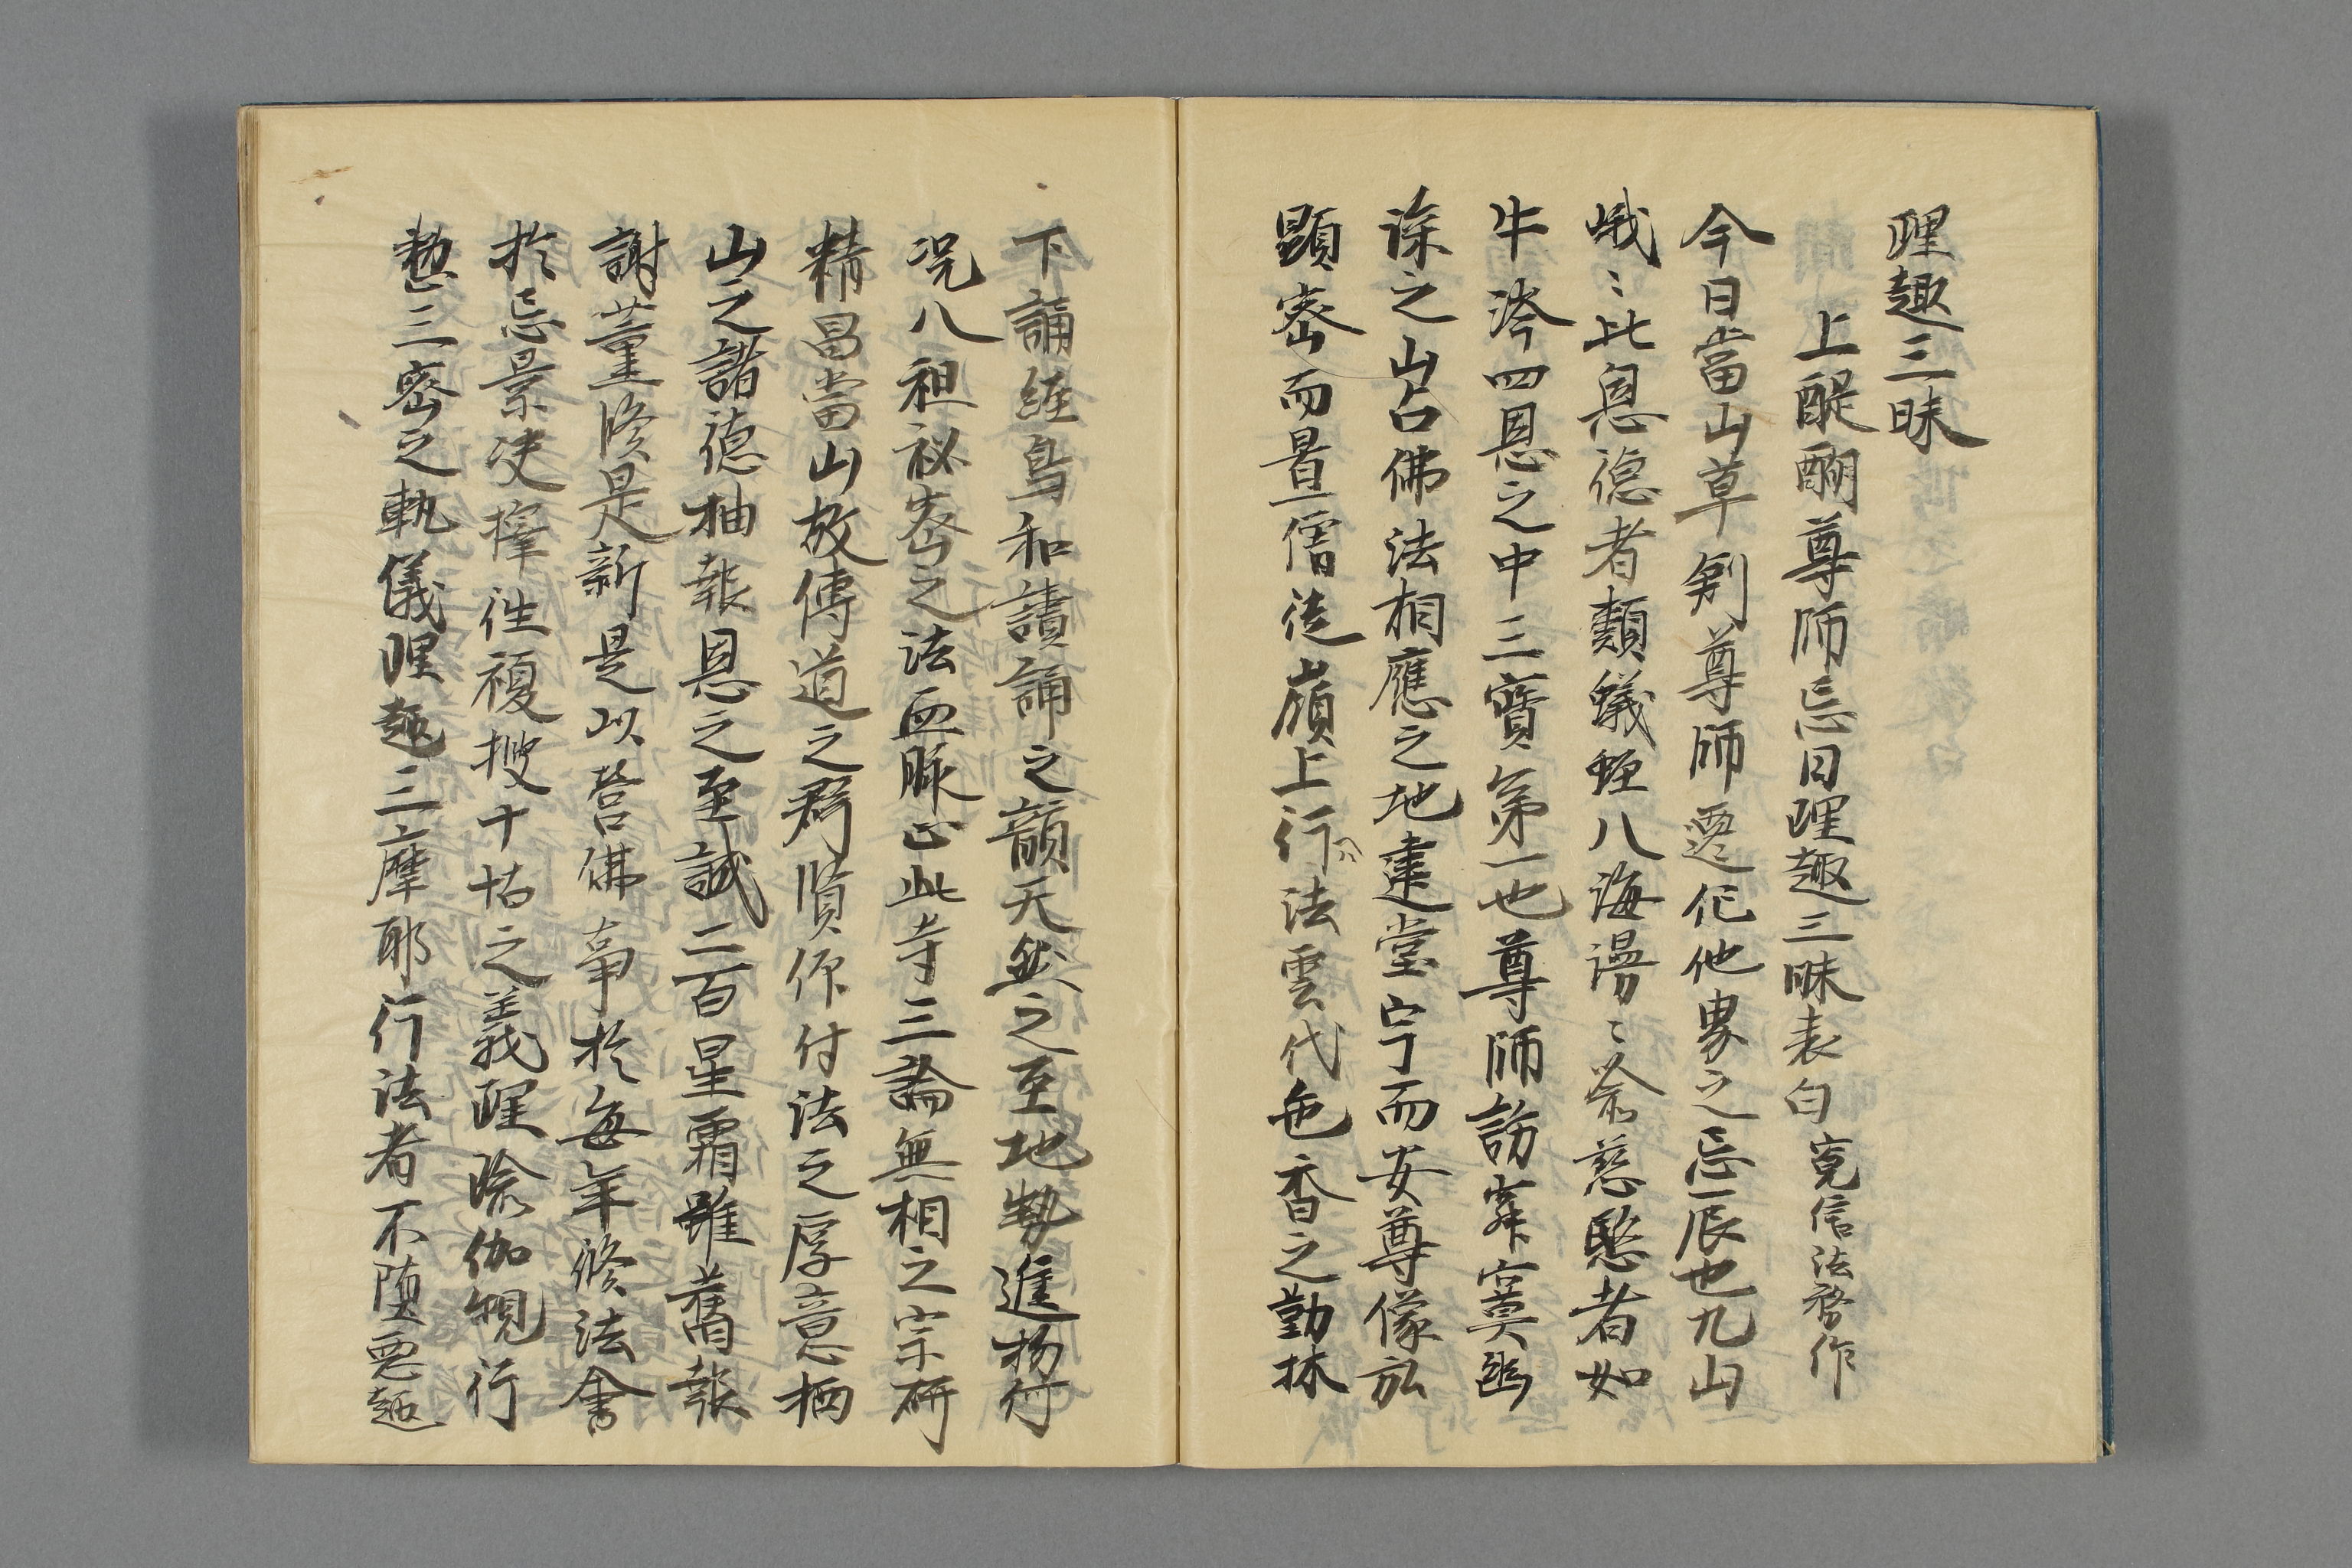 理趣三昧
上醍醐尊師忌日理趣三昧表白 寛信法務作
今日當山草創尊師遷化他界之忌辰也九山
峨〻比恩徳者類蟻蛭八海漫〻喩慈悲者如
牛涔四恩之中三寶第一也尊師訪寂寞幽
深之山占佛法相應之地建堂宇而安尊像弘
顯密而置僧徒嶺上行法雲代色香之勤林
下誦經鳥和讀誦之韻天然之至地勢進物付
况八祖祕密之法血脉止此寺三論無相之宗研
精昌當山故傳道之群賢作付法之厚意栖
山之諸徳抽報恩之至誠二百星霜雖舊報
謝薫修是新是以營佛事於每年修法會
於忌景使擇往復授十帖之義理瑜伽觀行
整三密之軌儀理趣三摩耶行法者不墮惡趣